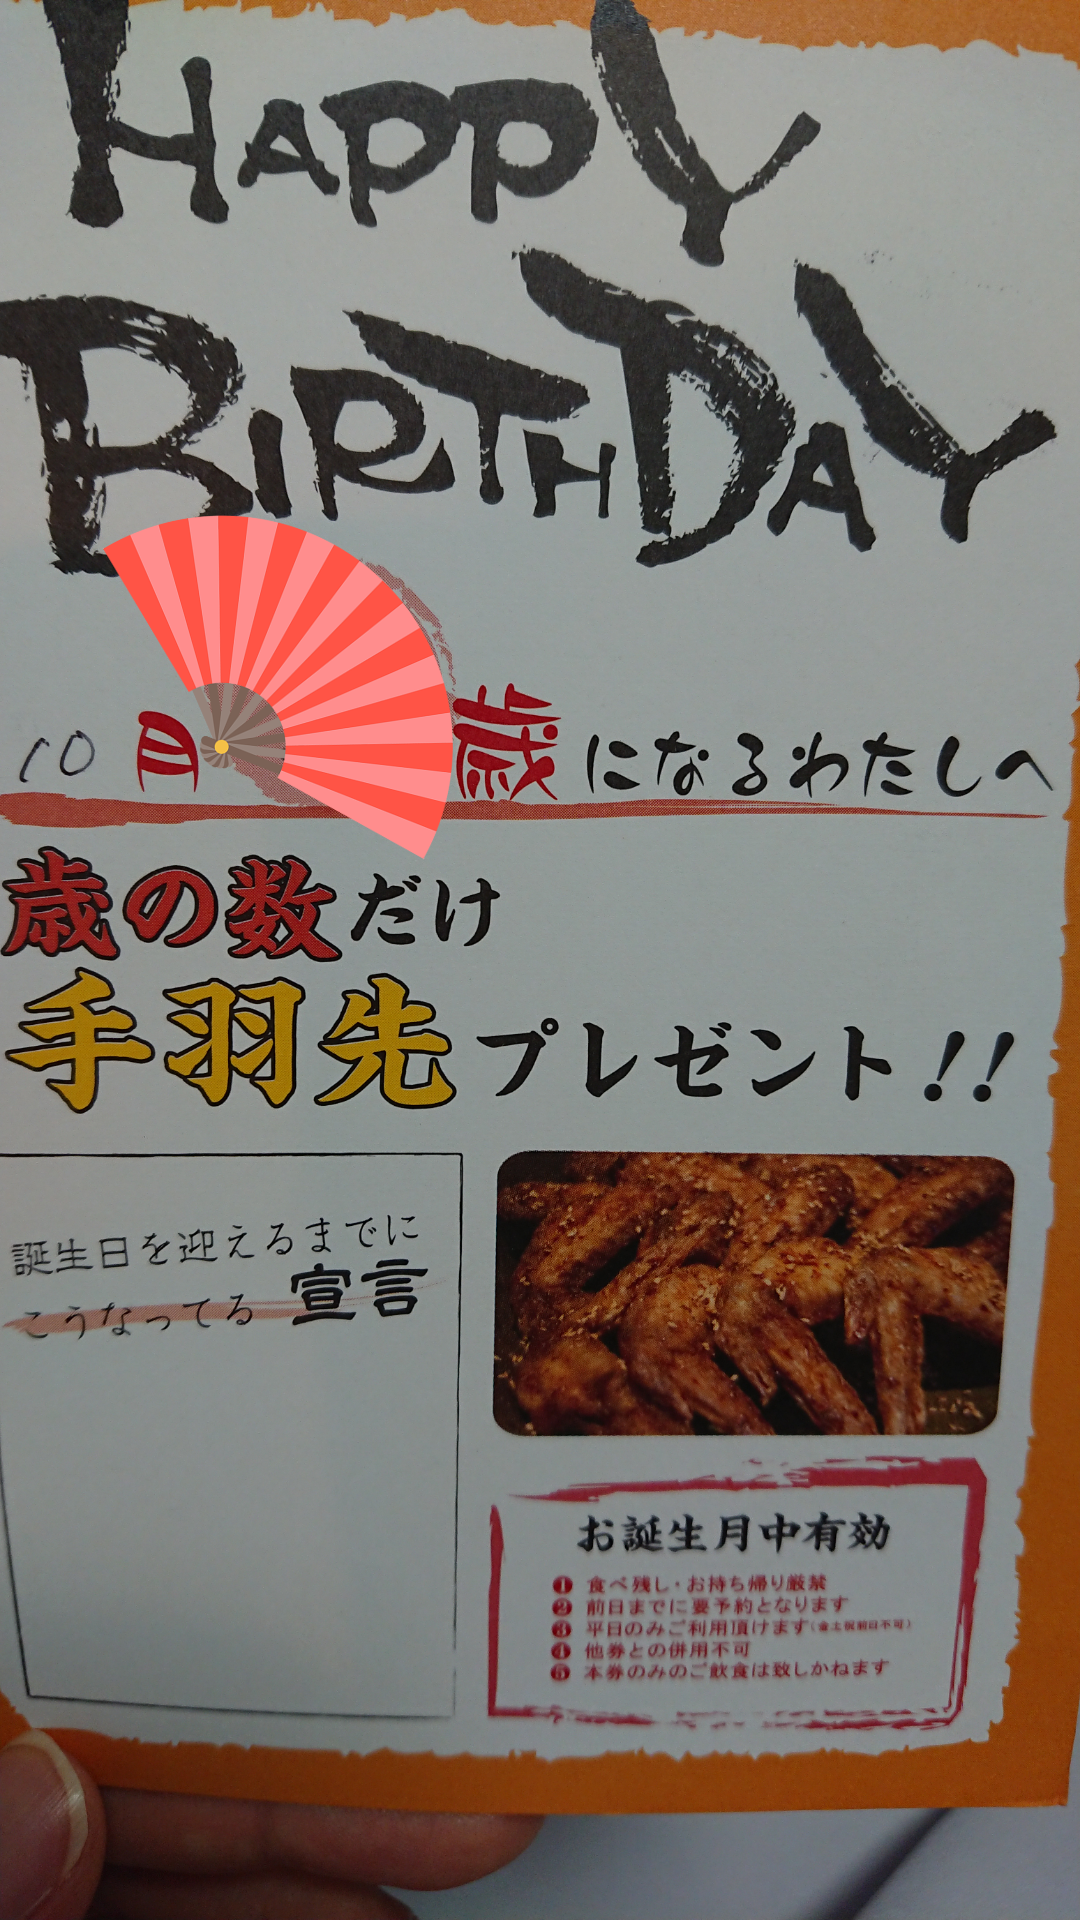 HAPPY
BIRTHDAY
10月 歳になるわたしへ
歳の数だけ
手羽先プレゼント!!
誕生日を迎えるまでに
こうなってる 宣言
お誕生月中有効
❶ 食べ残し・お持ち帰り厳禁
❷ 前日までに要予約となります
❸ 平日のみご利用頂けます(金土祝前日不可)
❹ 他券との併用不可
❺ 本券のみのご飲食は致しかねます